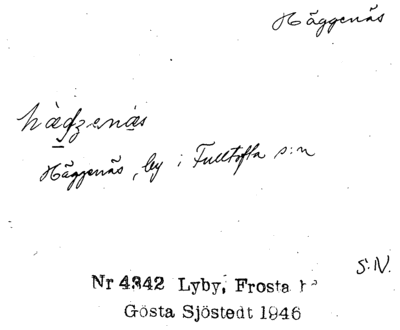 Häggenäs
hàgzenäs
Häggenäs, by i Fulltofta s:n
S.N.
Nr 4342 Lyby, Frosta h
Gösta Sjöstedt 1946